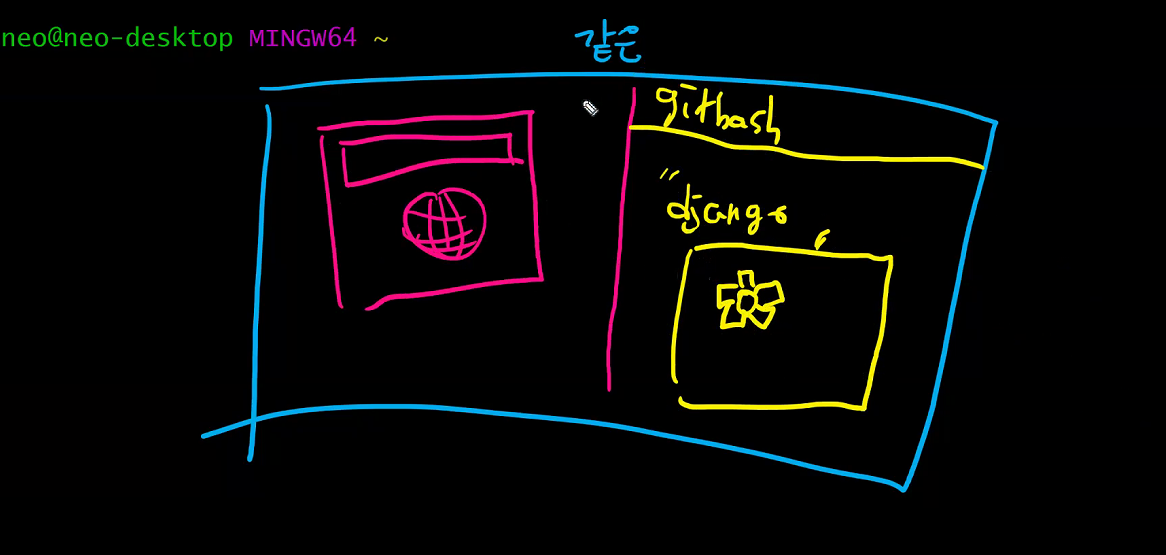 neo@neo-desktop MINGW64 ~
같은
gitbash
"django